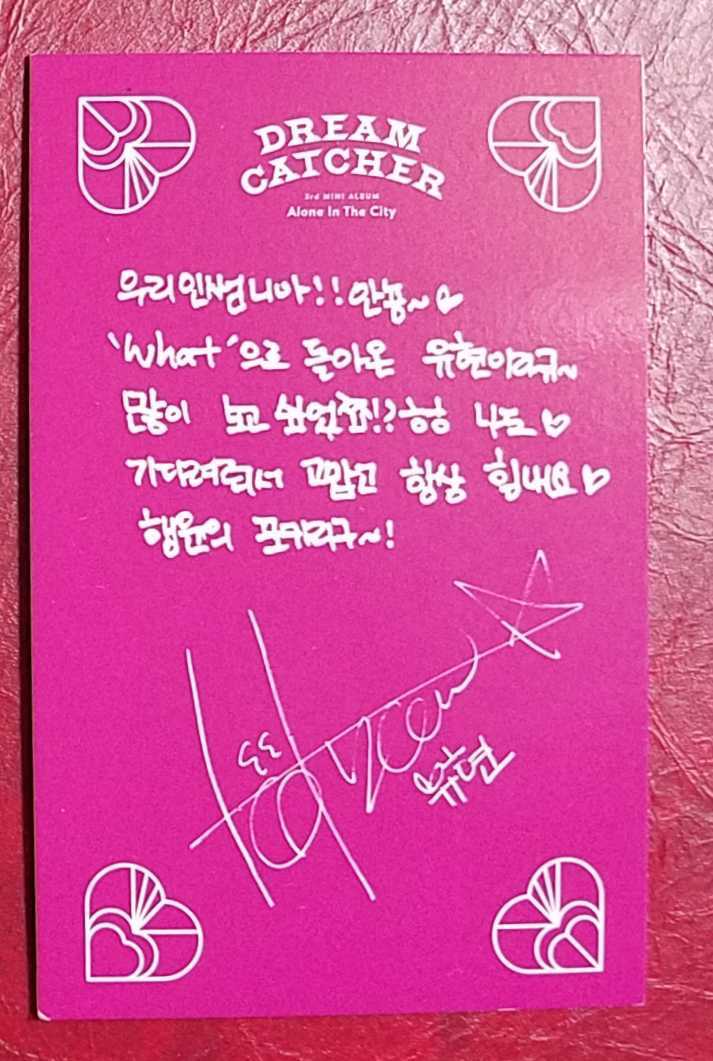 DREAM
CATCHER
3rd MINI ALBUM
Alone In The City
우리인썸니아!! 안뇽~♡
'What'으로 돌아온 유현이라규~
많이 보고 싶었쬬!? 헝헝 나도♡
기다려줘서 고맙고 항상 힘내요♡
행운의 포카라구~!
유현